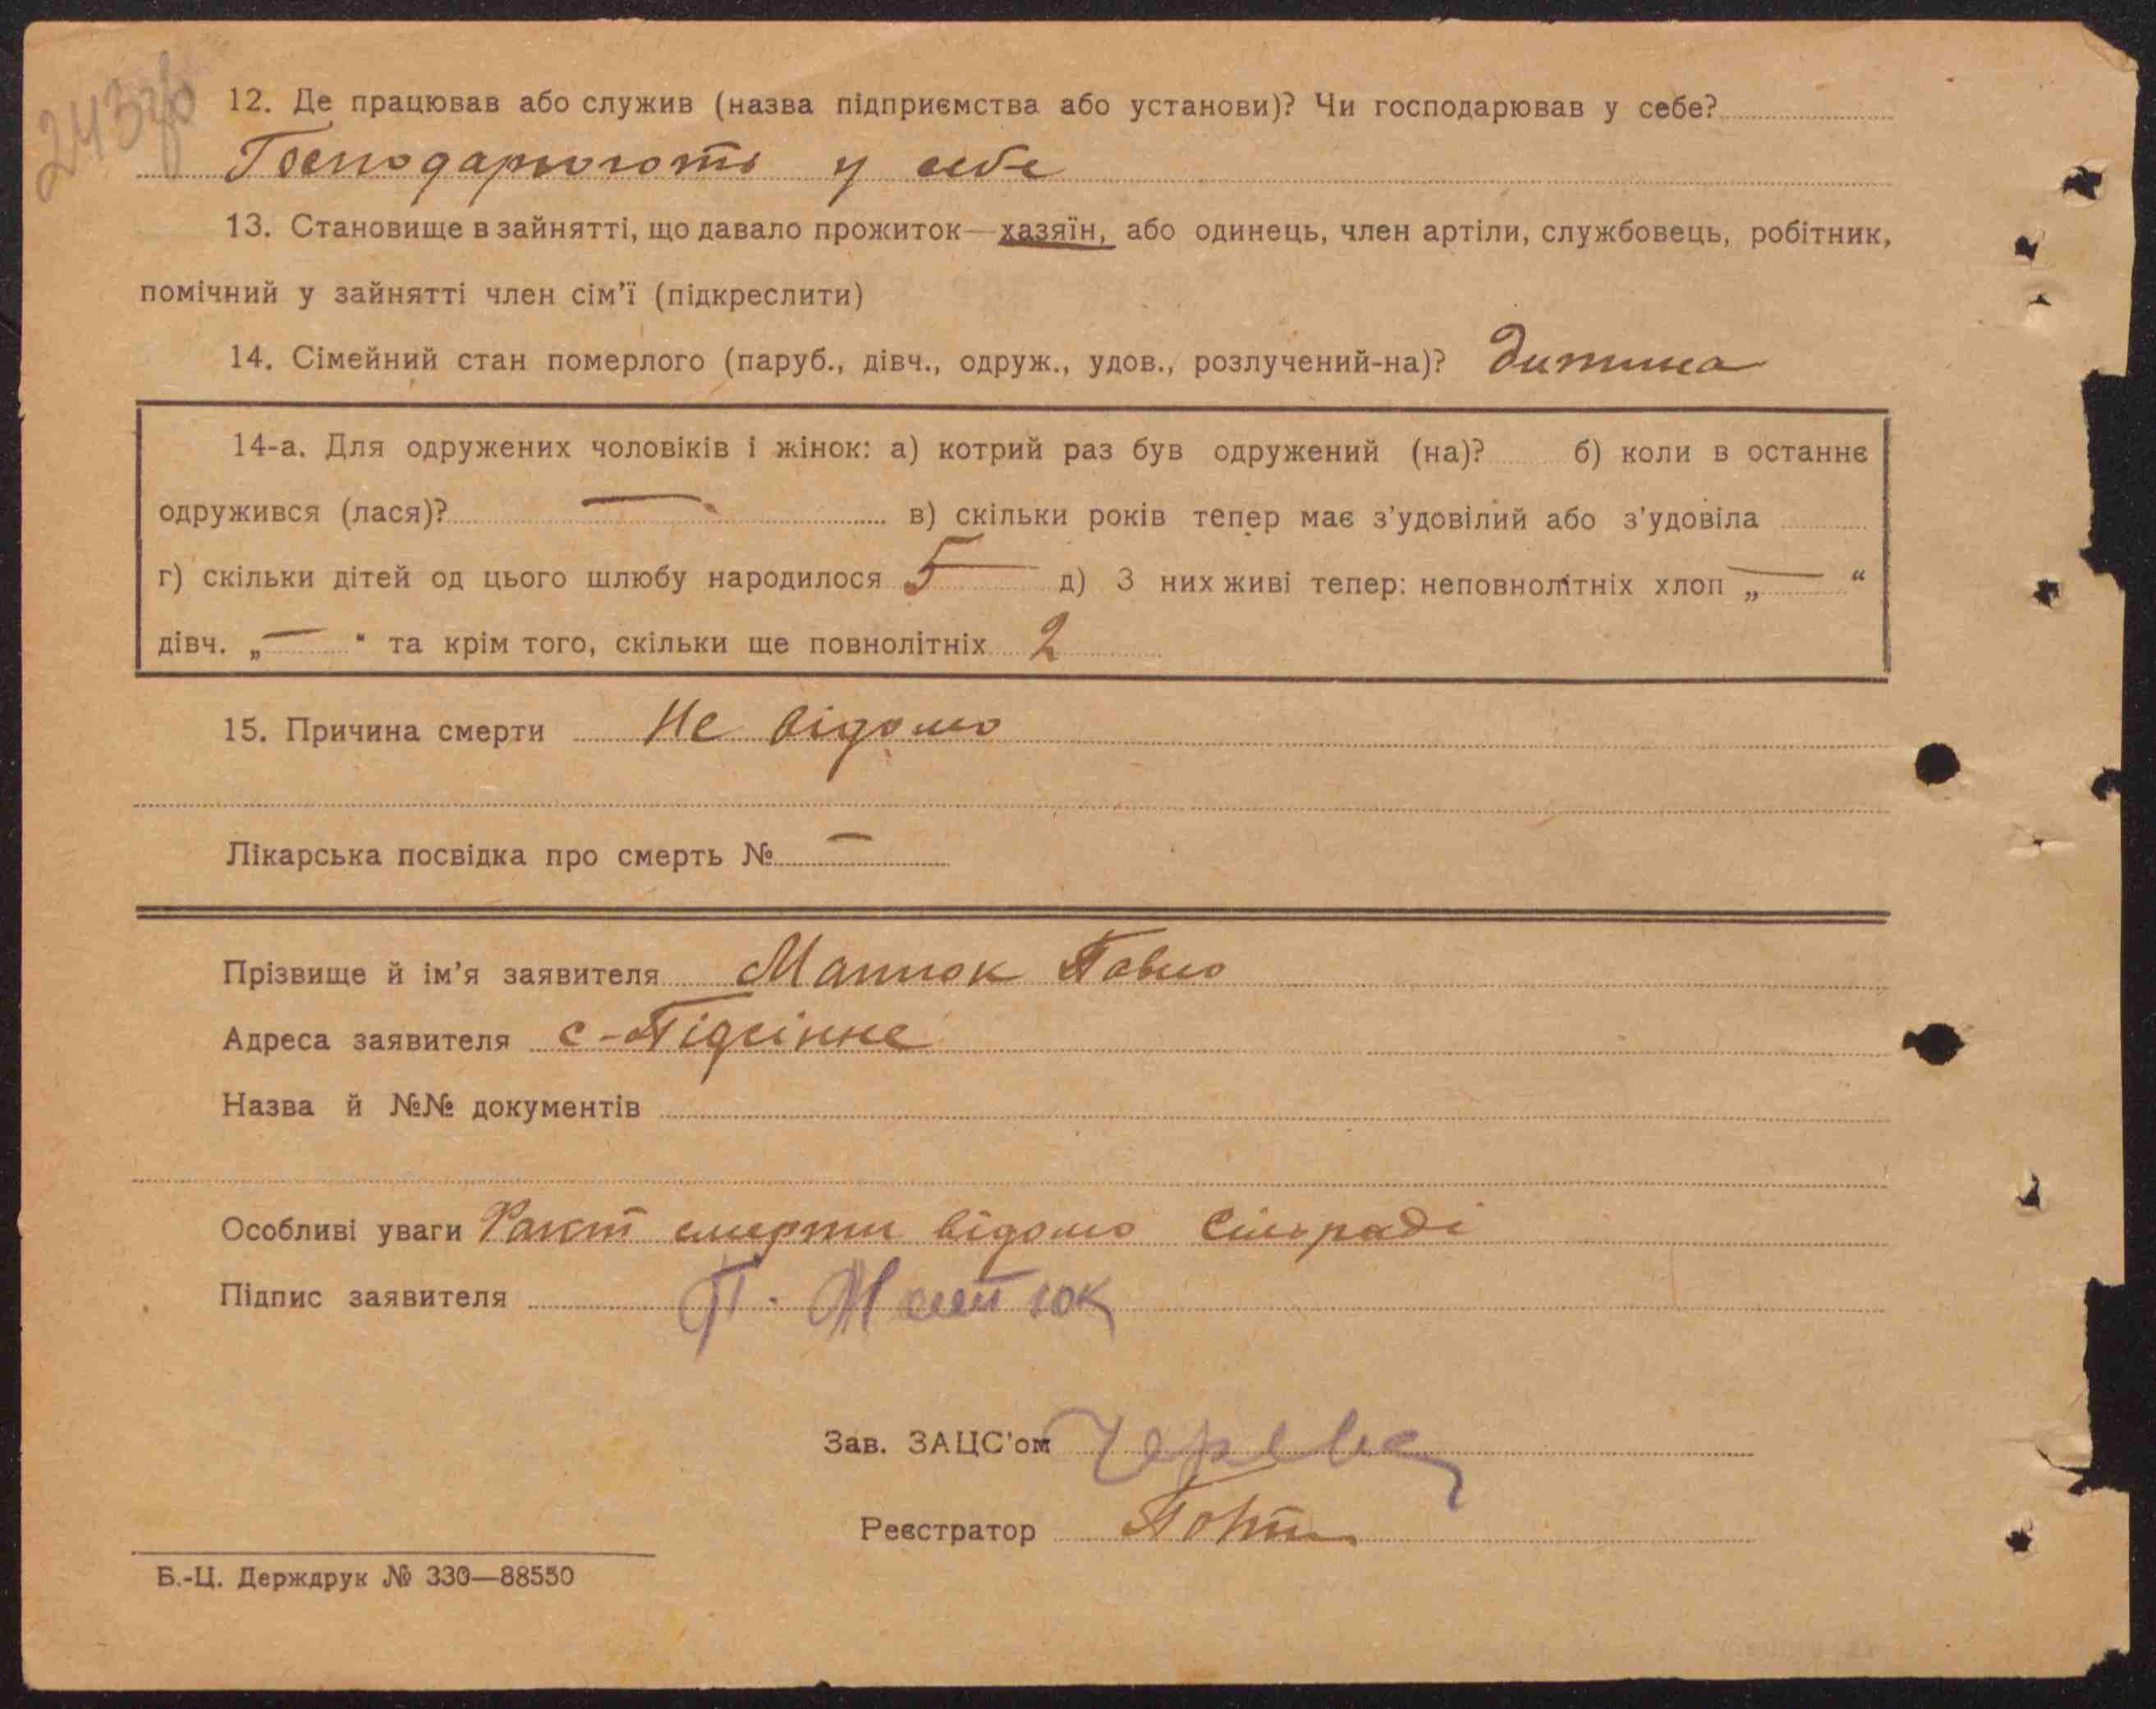 243зв
12. Де працював або служив (назва підприємства або установи)? Чи господарював у себе?
Господарюють у себе
13. Становище в зайнятті, що давало прожиток—хазяїн, або одинець, член артіли, службовець, робітник,
помічний у зайнятті член сім’ї (підкреслити)
14. Сімейний стан померлого (паруб., дівч., одруж., удов., розлучений-на)? дитина
14-а. Для одружених чоловіків і жінок: а) котрий раз був одружений (на)? б) коли в останнє
одружився (лася)? — в) скільки років тепер має з’удовілий або з’удовіла
г) скільки дітей од цього шлюбу народилося 5 — д) З них живі тепер: неповнолітніх хлоп „ — “
дівч. „ — “ та крім того, скільки ще повнолітніх 2
15. Причина смерти Не відомо
Лікарська посвідка про смерть № —
Прізвище й ім’я заявителя Матюк Павло
Адреса заявителя с-Підсінне
Назва й №№ документів
Особливі уваги Факт смерти відомо Сільраді
Підпис заявителя П. Матюк
Зав. ЗАЦС’ом
Реєстратор
Б.-Ц. Держдрук № 330—88550